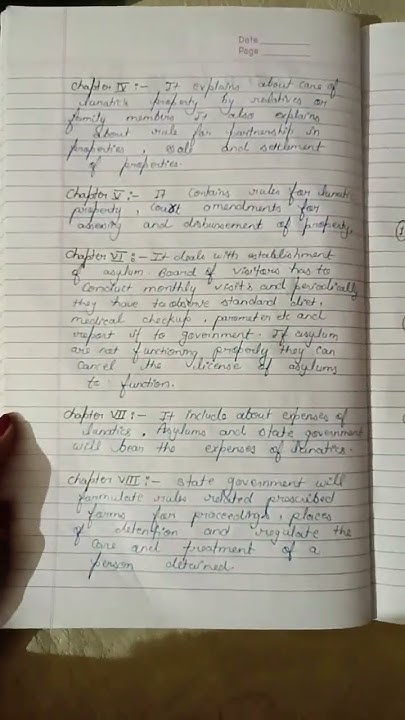 Date
Page
Chapter IV :- , It explains about care of
lunatics property by relatives or
family members It also explains
about rule for partnership in
properties, sale and settlement
of properties.
Chapter V :- It Contains rules for lunatic
property, court amendments for
assessing and disbursement of property.
Chapter VI :- It deals with establishment
of asylum. Board of visitors has to
conduct monthly visits and periodically
they have to observe standard diet,
medical checkup, parameter etc and
report it to government. If asylum
are not functioning properly they can
cancel the license of asylums
to function.
Chapter VII :- It Include about expenses of
lunatics, Asylums and state government
will bear the expenses of lunatics.
Chapter VIII :- State government will
formulate rules related prescribed
forms for proceedings, places
of detention and regulate the
care and treatment of a
person detained